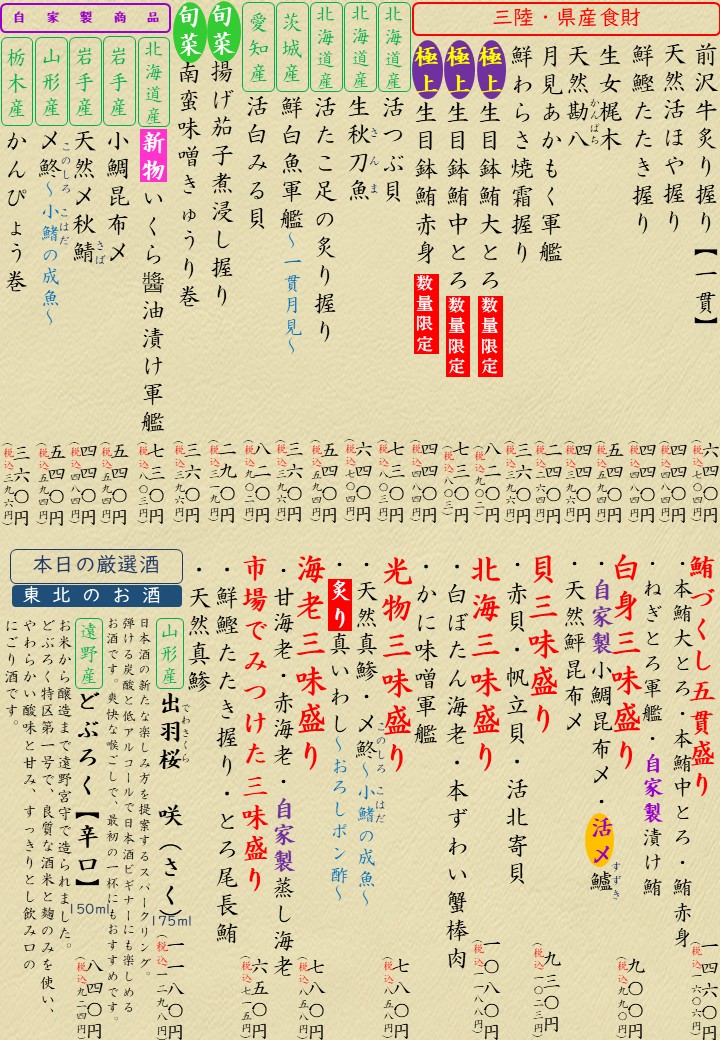 三陸・県産食財
前沢牛炙り握り【一貫】 六四〇円 (税込七〇四円)
天然活ほや握り 四四〇円 (税込四八四円)
鮮鰹たたき握り 四四〇円 (税込四八四円)
生女梶木 五四〇円 (税込五九四円)
天然勘八 かんぱち 四四〇円 (税込四八四円)
月見あかもく軍艦 二四〇円 (税込二六四円)
鮮わらさ焼霜握り 三六〇円 (税込三九六円)
極上 生目鉢鮪大とろ 数量限定 八二〇円 (税込九〇二円)
極上 生目鉢鮪中とろ 数量限定 七三〇円 (税込八〇三円)
極上 生目鉢鮪赤身 数量限定 四四〇円 (税込四八四円)
北海道産 活つぶ貝 七三〇円 (税込八〇三円)
北海道産 生秋刀魚 さんま 六四〇円 (税込七〇四円)
北海道産 活たこ足の炙り握り 五四〇円 (税込五九四円)
茨城産 鮮白魚軍艦～一貫月見～ 三六〇円 (税込三九六円)
愛知産 活白みる貝 八二〇円 (税込九〇二円)
旬菜 揚げ茄子煮浸し握り 二九〇円 (税込三一九円)
旬菜 南蛮味噌きゅうり巻 三六〇円 (税込三九六円)
自家製商品
北海道産 新物 いくら醬油漬け軍艦 七三〇円 (税込八〇三円)
岩手産 小鯛昆布〆 五四〇円 (税込五九四円)
岩手産 天然〆秋鯖 さば 四四〇円 (税込四八四円)
山形産 〆鮗～小鰭の成魚～ このしろ こはだ 五四〇円 (税込五九四円)
栃木産 かんぴょう巻 三六〇円 (税込三九六円)
鮪づくし五貫盛り 一四六〇円 (税込一六〇六円)
・本鮪大とろ・本鮪中とろ・鮪赤身
・ねぎとろ軍艦・自家製漬け鮪
白身三味盛り 九〇〇円 (税込九九〇円)
・自家製小鯛昆布〆・活〆鱸 すずき
・天然鮃昆布〆
貝三味盛り 九三〇円 (税込一〇二三円)
・赤貝・帆立貝・活北寄貝
北海三味盛り 一〇八〇円 (税込一一八八円)
・白ぼたん海老・本ずわい蟹棒肉
・かに味噌軍艦
光物三味盛り 七八〇円 (税込八五八円)
・天然真鯵・〆鮗～小鰭の成魚～ このしろ こはだ
・炙り真いわし～おろしポン酢～
海老三味盛り 七八〇円 (税込八五八円)
・甘海老・赤海老・自家製蒸し海老
市場でみつけた三味盛り 六五〇円 (税込七一五円)
・鮮鰹たたき握り・とろ尾長鮪
・天然真鯵
本日の厳選酒
東北のお酒
山形産 出羽桜 咲(さく) でわさくら 175ml 一一八〇円 (税込一二九八円)
日本酒の新たな楽しみ方を提案するスパークリング。
弾ける炭酸と低アルコールで日本酒ビギナーにも楽しめる
お酒です。爽快な喉ごしで、最初の一杯にもおすすめです。
遠野産 どぶろく【辛口】 150ml 八四〇円 (税込九二四円)
お米から醸造まで遠野宮守で造られました。
どぶろく特区第一号で、良質な酒米と麹のみを使い、
やわらかい酸味と甘み、すっきりとし飲み口の
にごり酒です。